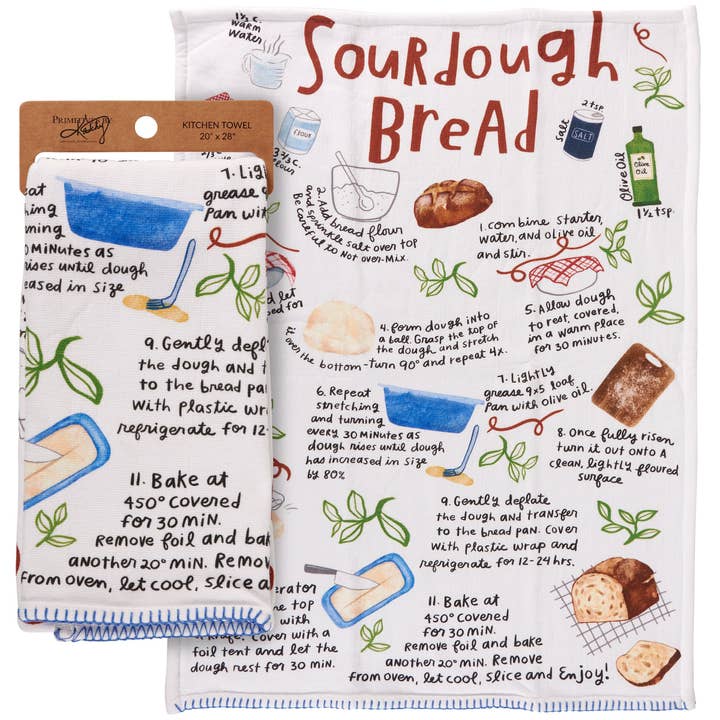 PRIMITIVES BY
Kathy
KITCHEN TOWEL
20" x 28"
7. Ligh
grease 9x
Pan with
30 Minutes as
rises until dough
eased in Size
9. Gently defla
the dough and t
to the bread pa
With plastic wra
refrigerate for 12-
11. Bake at
450° Covered
for 30 Min.
Remove foil and bak
another 20° Min. Remove
from oven, let cool, slice a
Sourdough
Bread
1½ c.
Warm
Water
FLOUR
3⅔ c.
2 tsp
Salt
SALT
Olive Oil
Olive
Oil
1½ tsp.
2. Add bread flour
and sprinkle salt over top
Be careful to Not over-Mix.
1. Combine starter,
water, and olive oil
and stir.
4. Form dough into
a ball. Grasp the top of
the dough and stretch
it over the bottom-turn 90° and repeat 4x.
5. Allow dough
to rest, covered,
in a warm place
for 30 minutes.
6. Repeat
stretching
and turning
every 30 Minutes as
dough rises until dough
has increased in Size
by 80%
7. Lightly
grease 9x5 loaf
Pan with olive oil.
8. Once fully risen
turn it out onto a
clean, lightly floured
surface
9. Gently deflate
the dough and transfer
to the bread pan. Cover
with plastic wrap and
refrigerate for 12-24 hrs.
erator
e top
with
knife. Cover with a
foil tent and let the
dough rest for 30 min.
11. Bake at
450° covered
for 30 min.
Remove foil and bake
another 20° min. Remove
from oven, let cool, slice and Enjoy!